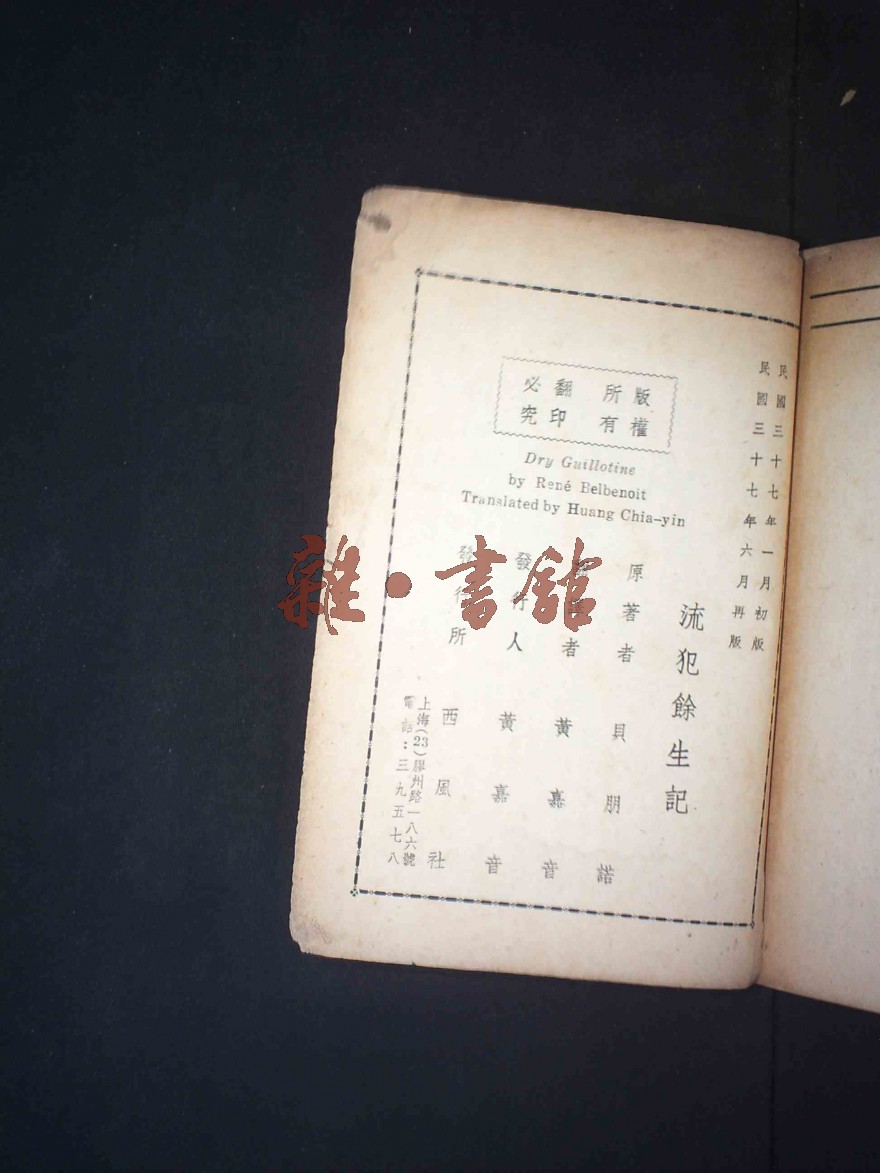 民國三十七年一月初版
民國三十七年六月再版
版權所有
翻印必究
Dry Guillotine
by René Belbenoit
Translated by Huang Chia-yin
流犯餘生記
原著者 貝朋諾
者 黃嘉音
發行人 黃嘉音
發行所 西風社
上海(23)膠州路一八六號
電話：三九五七八
雜·書館